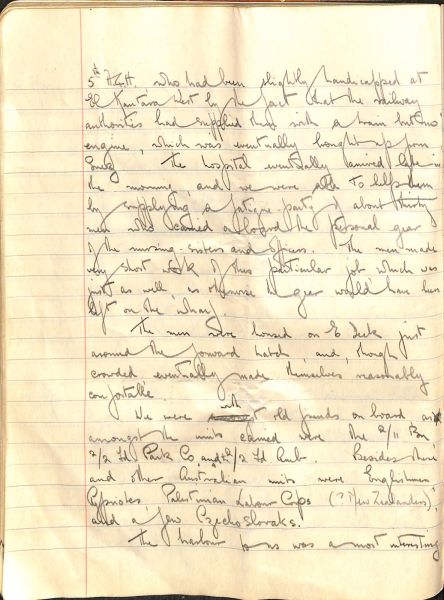 5th A.G.H. who had been slightly handicapped at
El Kantara West by the fact that the railway
authorities had supplied them with a train but no
engine, which was eventually brought up from
Suez. The hospital eventually arrived late in
the morning, and we were able to help them
by supplying a fatigue party of about thirty
men who carried aboard the personal gear
of the nursing-sisters and officers. The men made
very short work of this particular job which was
just as well, as otherwise the gear would have been
left on the wharf.
The men were housed on E deck just
around the forward hatch, and, though
crowded eventually made themselves reasonably
comfortable.
We were with old friends on board as
amongst the units carried were the 2/11 Bn
2/2 Fd Park Co and 2/2 Fd Amb. Besides these
and other Australian units were Englishmen
Cypriotes, Palestinian Labour Corps (? New Zealanders),
and a few Czechoslovaks.
The harbour was a most interesting